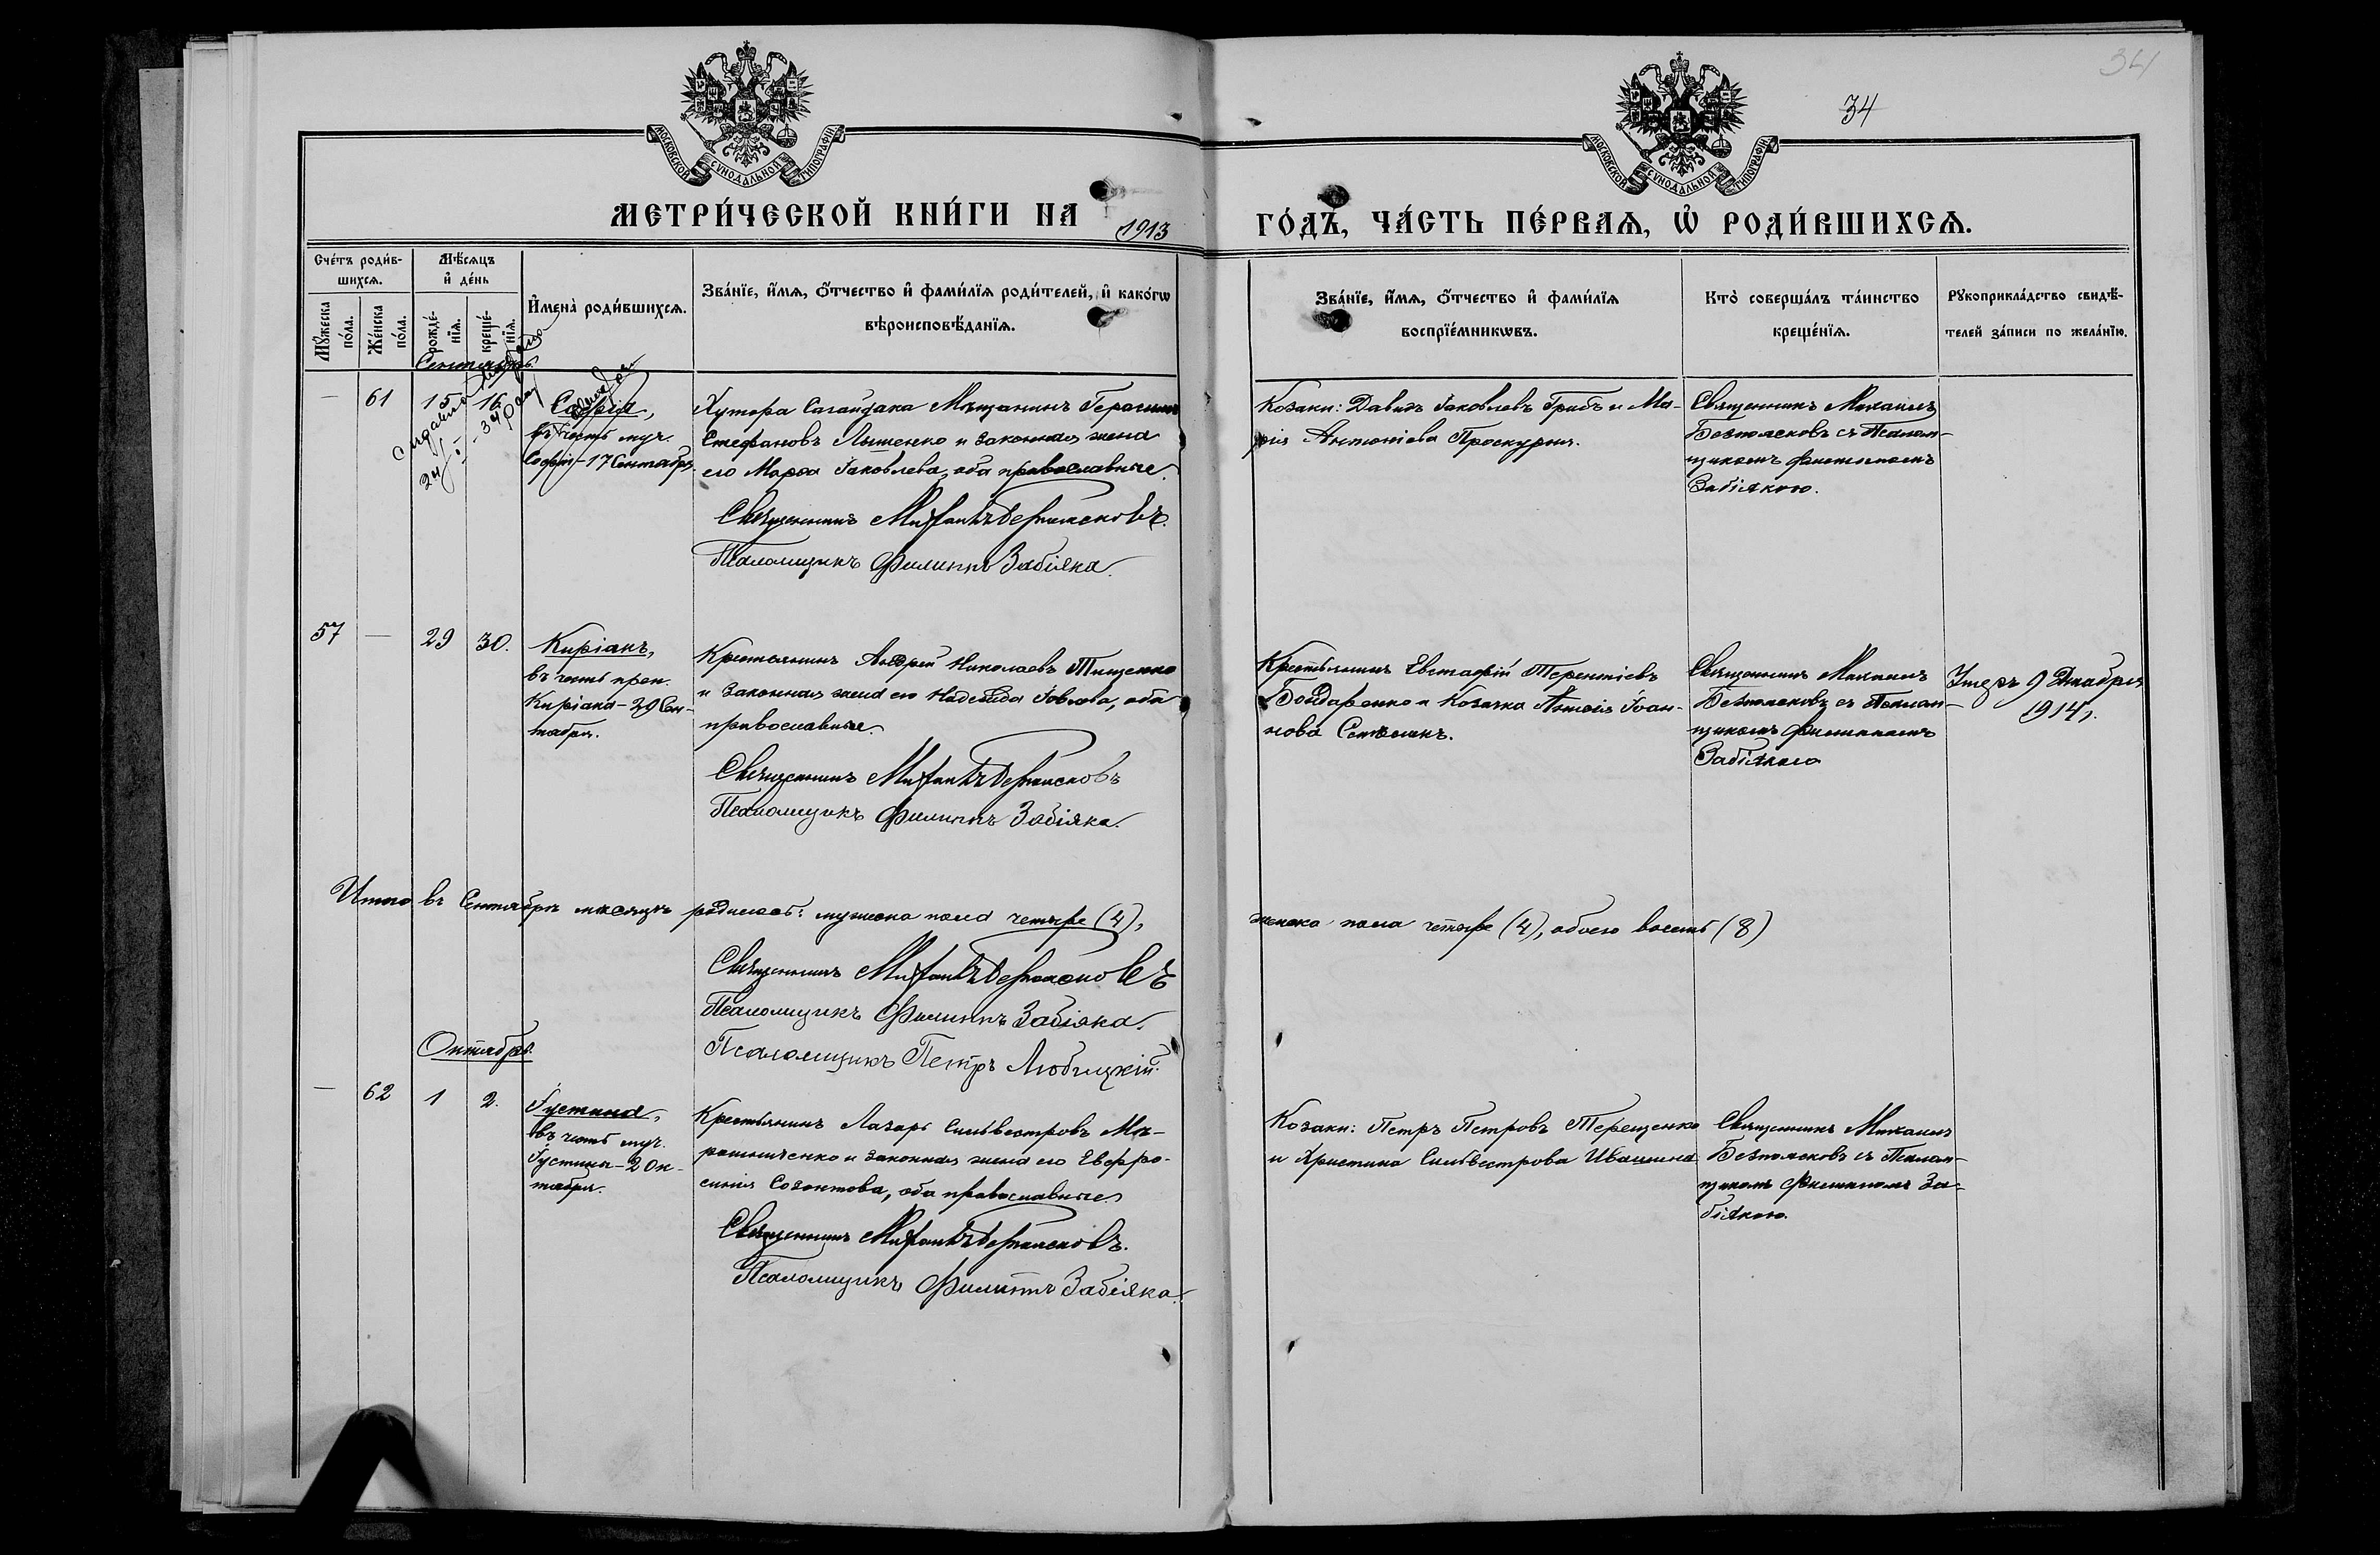 34
34
МОСКОВСКОЙ СѴНОДАЛЬНОЙ ТИПОГРАФІИ
МОСКОВСКОЙ СѴНОДАЛЬНОЙ ТИПОГРАФІИ
МЕТРИ́ЧЕСКОЙ КНИ́ГИ НА 1913
ГО́ДЪ, ЧА́СТЬ ПЕ́РВАѦ, Ѡ҆ РОДИ́ВШИХСѦ.
Сче́тъ роди́в-
шихсѧ.
Мꙋ́жеска по́ла.
Же́нска по́ла.
Мѣ́сѧцъ
и҆ де́нь
рожде́-нїѧ.
креще́-нїѧ.
И҆мена̀ роди́вшихсѧ.
Зва́нїе, и҆́мѧ, ѻ҆́тчество и҆ фами́лїѧ роди́телей, и҆ како́гѡ
вѣроисповѣ́данїѧ.
Зва́нїе, и҆́мѧ, ѻ҆́тчество и҆ фами́лїѧ
воспрїе́мникѡвъ.
Кто̀ соверша́лъ та́инство
креще́нїѧ.
Рꙋкоприкла́дство свидѣ́-
телей за́писи по жела́нїю.
Сентябрь.
— 61 15 16
Софія,
въ честь муч.
Софіи - 17 Сентября.
Хутора Сагайдака Мѣщанинъ Герасимъ
Стефановъ Лышенко и законная жена
его Марѳа Іаковлева, оба православные.
Священникъ Михаилъ Безпалсковъ.
Псаломщикъ Филиппъ Забіяка.
Козаки: Давидъ Іаковлевъ Грибъ и Ма-
рія Антоніева Проскурня.
Священникъ Михаилъ
Безпалсковъ съ Псалом-
щикомъ Филиппомъ
Забіякою.
57 — 29 30.
Киріакъ,
въ честь преп.
Киріака - 29 Сен-
тября.
Крестьянинъ Андрей Николаевъ Тищенко
и законная жена его Надежда Іовлева, оба
православные.
Священникъ Михаилъ Безпалсковъ
Псаломщикъ Филиппъ Забіяка.
Крестьянинъ Евстафій Терентіевъ
Бондаренко и Козачка Іоан-
нова
Священникъ Михаилъ
Безпалсковъ съ Псалом-
щикомъ Филиппомъ
Забіякою
Умеръ 9 Декабря
1914 г.
Итого въ Сентябрѣ мѣсяцѣ родилось: мужска пола четыре (4),
женска пола четыре (4), обоего восемь (8)
Священникъ Михаилъ Безпалсковъ
Псаломщикъ Филиппъ Забіяка.
Псаломщикъ Петръ Любицкій.
Октябрь.
— 62 1 2.
Іустина,
въ честь муч.
Іустины - 2 Ок-
тября.
Крестьянинъ Лазарь Сильвестровъ Мѣ-
рошниченко и законная жена его Евфро-
синія Созонтова, оба православные
Священникъ Михаилъ Безпалсковъ.
Псаломщикъ Филиппъ Забіяка.
Козаки: Петръ Петровъ Терещенко
и Христина Сильвестрова Ивашина
Священникъ Михаилъ
Безпалсковъ съ Псалом-
щикомъ Филиппомъ За-
біякою.